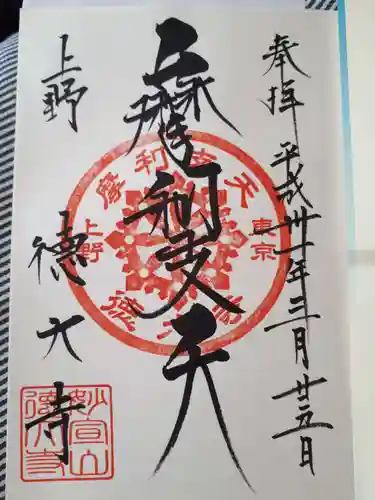 奉拝 平成卅一年三月廿五日
摩利支天
上野
徳大寺
摩利支天
東京
上野
徳大寺
妙宣山
徳大寺